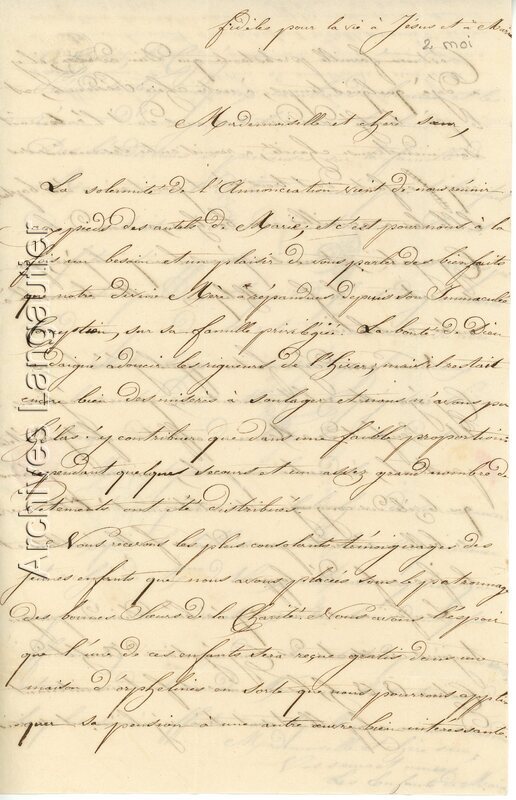 fidèles pour la vie à Jésus et à Marie
2 moi
Mademoiselle et chère sœur,
La solemnité de l'Annonciation vient de nous réunir
pieds des autels de Marie, et c'est pour nous à la
fois un besoin et un plaisir de vous parler des bienfaits
que notre divine Mère a répandus depuis son Immaculée
Conception, sur sa famille privilégiée. La bonté de Dieu
daigné adoucir les rigueurs de l'hiver, mais il restait
encore bien des misères à soulager et nous n'avons pu
hélas ! y contribuer que dans une faible proportion.
cependant quelques secours et un assez grand nombre de
vêtements ont été distribués.
Nous recevons les plus consolants témoignages des
jeunes enfants que nous avons placées sous le patronnage
des bonnes Sœurs de la Charité. Nous avons l'espoir
que l'une de ces enfants sera reçue gratis dans une
maison d'orphelines en sorte que nous pourrons appli
quer sa pension à une autre œuvre bien intéressante.
Archives Langautier